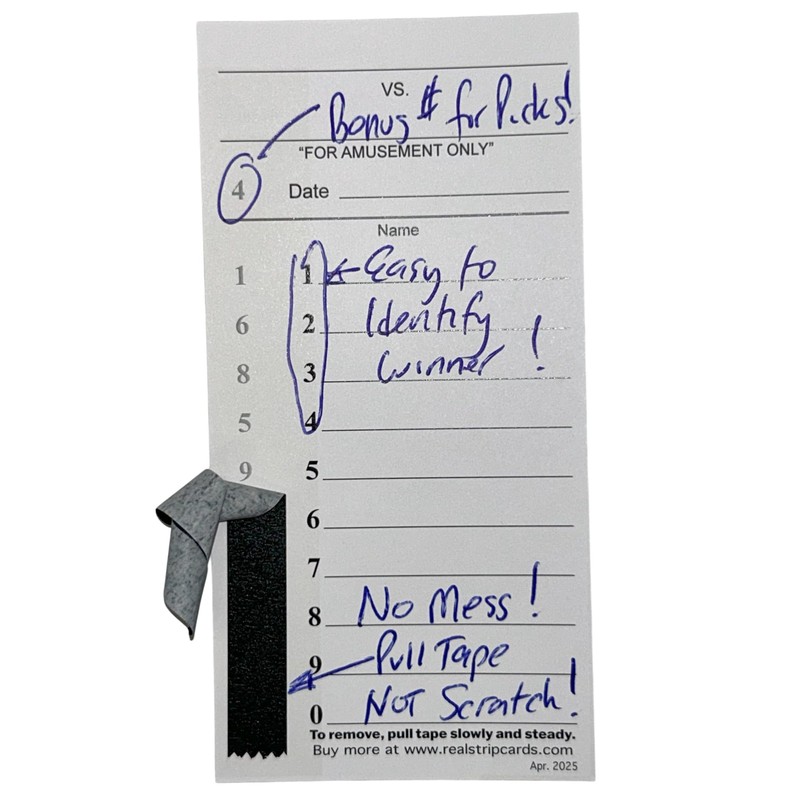 VS.
Bonus # for Picks!
"FOR AMUSEMENT ONLY"
4 Date
Name
1 1 Easy to
6 2 Identify
8 3 Winner!
5 4
9 5
6
7
8 No Mess!
9 Pull Tape
0 NOT Scratch!
To remove, pull tape slowly and steady.
Buy more at www.realstripcards.com
Apr. 2025